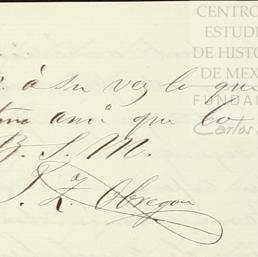 CENTRO
ESTUDI
DE HISTO
DE MEXI
FUNDA
Carlos
à su vez lo que
am.º que lo
B. S. M.
J. Z. Obregon